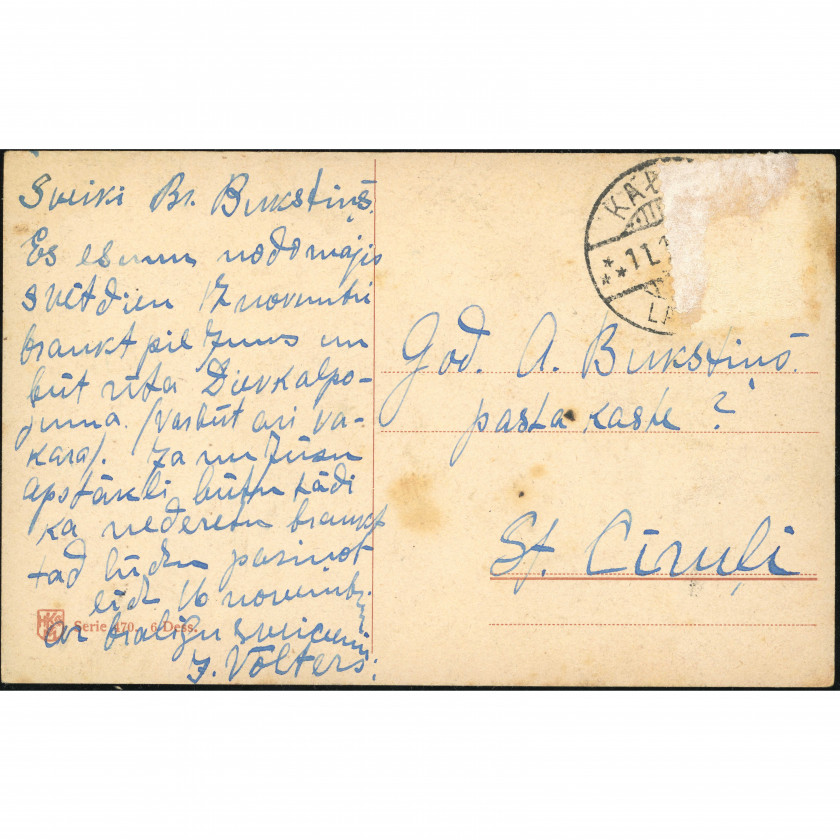 Sveiki Br. Bukstiņš.
Es esmu nodomājis
svētdien 17 novembri
braukt pie Jums un
būt rīta Dievkalpo-
juma (varbūt arī va-
kara). Ja nu Jūsu
apstākļi būtu tādi
ka neđeretu braukt
tad lūdzu paziņot
līdz 16 novembr.
ar brāļīgu sveicienu
J. Volters.
HKG
M
Serie 470. 6 Dess.
KA
11.1
L
God. A. Bukstiņš.
pasta kaste ?
St. Cīruļi